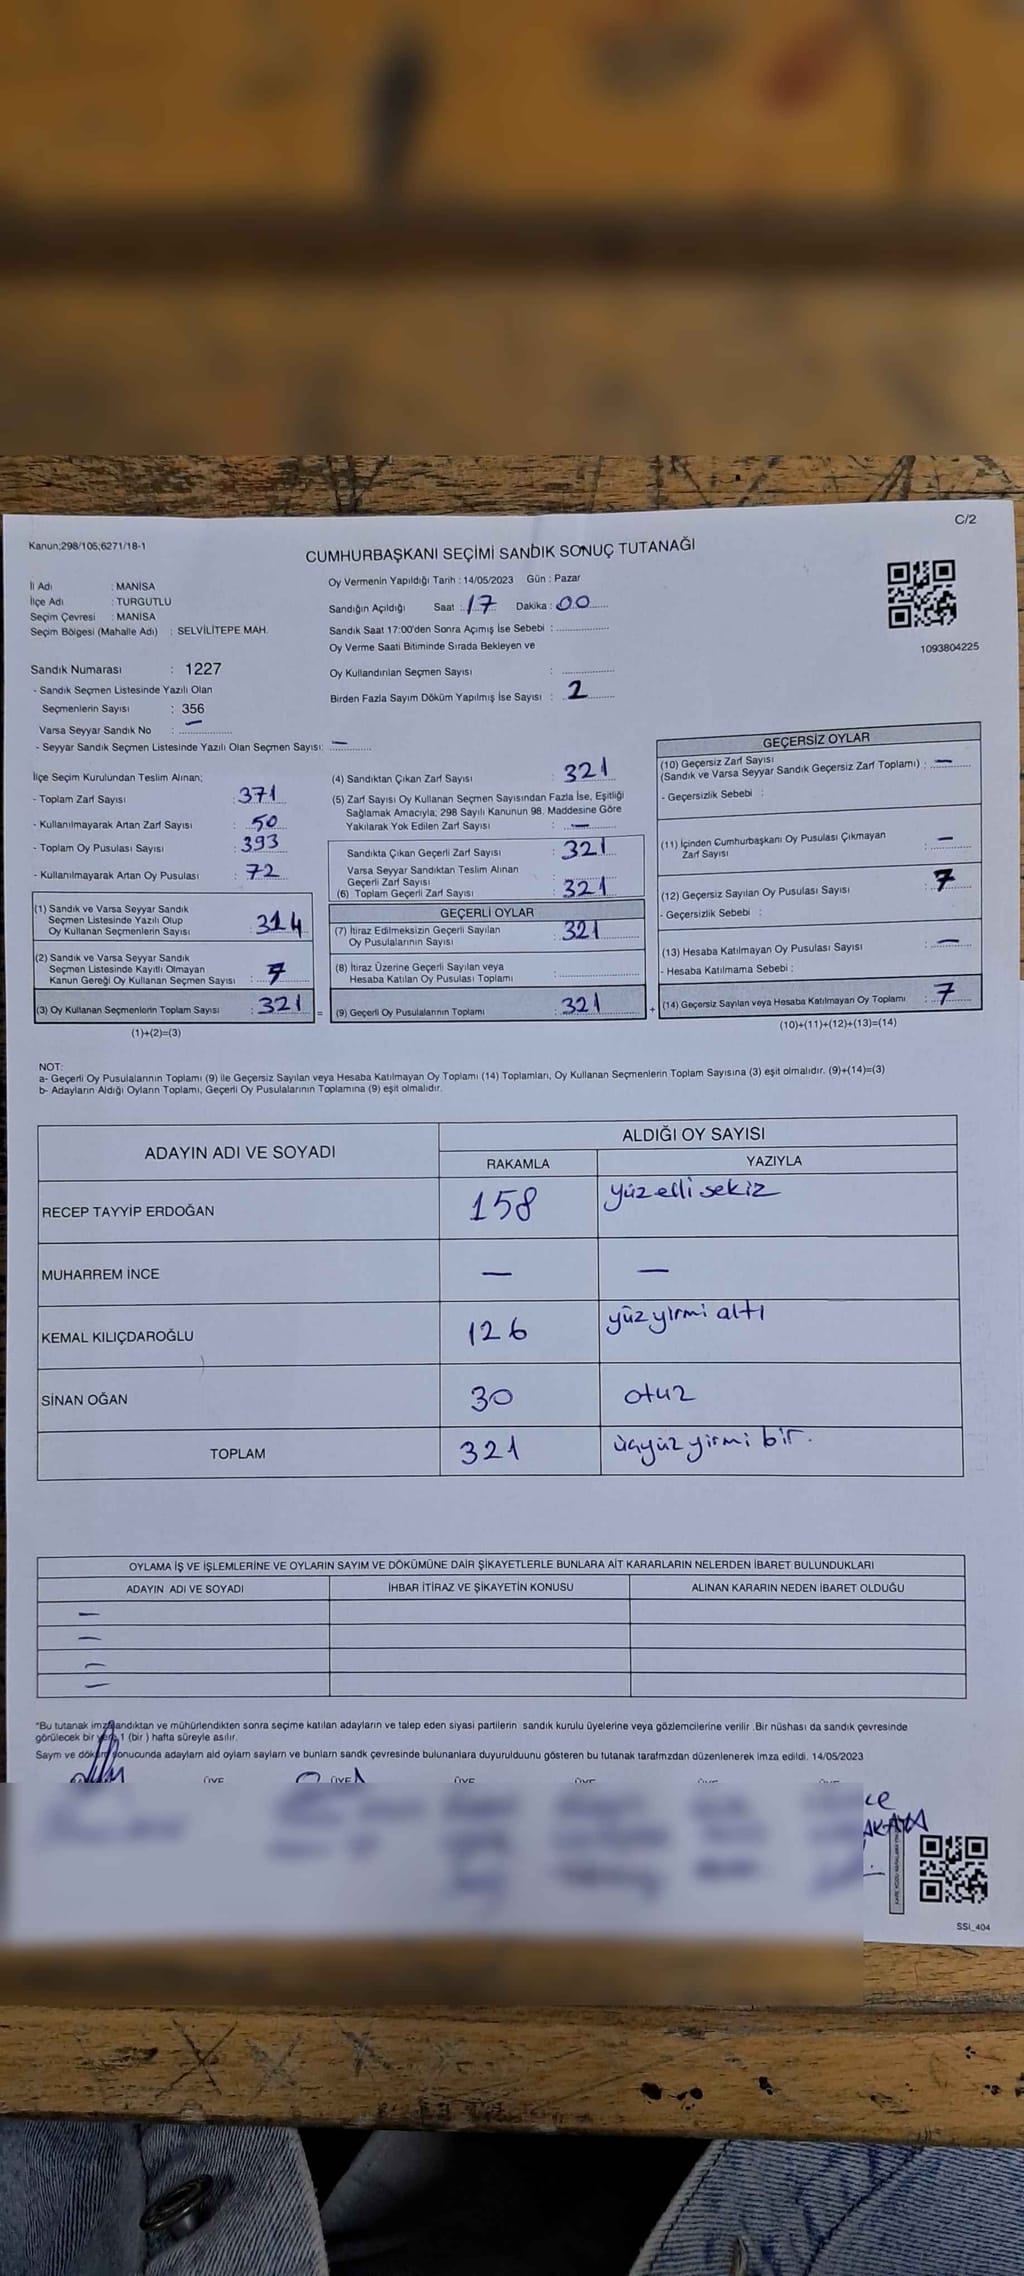 C/2
Kanun;298/105;6271/18-1
CUMHURBAŞKANI SEÇİMİ SANDIK SONUÇ TUTANAĞI
İl Adı : MANİSA
İlçe Adı : TURGUTLU
Seçim Çevresi : MANİSA
Seçim Bölgesi (Mahalle Adı) : SELVİLİTEPE MAH.
Oy Vermenin Yapıldığı Tarih : 14/05/2023 Gün : Pazar
Sandığın Açıldığı Saat : 17 Dakika : 00
Sandık Saat 17:00'den Sonra Açımış İse Sebebi :
Oy Verme Saati Bitiminde Sırada Bekleyen ve
Oy Kullandırılan Seçmen Sayısı :
Birden Fazla Sayım Döküm Yapılmış İse Sayısı : 2
1093804225
Sandık Numarası : 1227
- Sandık Seçmen Listesinde Yazılı Olan
Seçmenlerin Sayısı : 356
Varsa Seyyar Sandık No : —
- Seyyar Sandık Seçmen Listesinde Yazılı Olan Seçmen Sayısı: —
İlçe Seçim Kurulundan Teslim Alınan;
- Toplam Zarf Sayısı : 371
- Kullanılmayarak Artan Zarf Sayısı : 50
- Toplam Oy Pusulası Sayısı : 393
- Kullanılmayarak Artan Oy Pusulası : 72
(1) Sandık ve Varsa Seyyar Sandık
Seçmen Listesinde Yazılı Olup
Oy Kullanan Seçmenlerin Sayısı : 314
(2) Sandık ve Varsa Seyyar Sandık
Seçmen Listesinde Kayıtlı Olmayan
Kanun Gereği Oy Kullanan Seçmen Sayısı : 7
(3) Oy Kullanan Seçmenlerin Toplam Sayısı : 321 =
(1)+(2)=(3)
(4) Sandıktan Çıkan Zarf Sayısı : 321
(5) Zarf Sayısı Oy Kullanan Seçmen Sayısından Fazla İse, Eşitliği
Sağlamak Amacıyla; 298 Sayılı Kanunun 98. Maddesine Göre
Yakılarak Yok Edilen Zarf Sayısı : —
Sandıkta Çıkan Geçerli Zarf Sayısı : 321
Varsa Seyyar Sandıktan Teslim Alınan
Geçerli Zarf Sayısı
(6) Toplam Geçerli Zarf Sayısı : 321
GEÇERLİ OYLAR
(7) İtiraz Edilmeksizin Geçerli Sayılan
Oy Pusulalarının Sayısı : 321
(8) İtiraz Üzerine Geçerli Sayılan veya
Hesaba Katılan Oy Pusulası Toplamı :
(9) Geçerli Oy Pusulalarının Toplamı : 321 +
GEÇERSİZ OYLAR
(10) Geçersiz Zarf Sayısı
(Sandık ve Varsa Seyyar Sandık Geçersiz Zarf Toplamı) : —
- Geçersizlik Sebebi :
(11) İçinden Cumhurbaşkanı Oy Pusulası Çıkmayan
Zarf Sayısı : —
(12) Geçersiz Sayılan Oy Pusulası Sayısı : 7
- Geçersizlik Sebebi :
(13) Hesaba Katılmayan Oy Pusulası Sayısı : —
- Hesaba Katılmama Sebebi :
(14) Geçersiz Sayılan veya Hesaba Katılmayan Oy Toplamı : 7
(10)+(11)+(12)+(13)=(14)
NOT:
a- Geçerli Oy Pusulalarının Toplamı (9) ile Geçersiz Sayılan veya Hesaba Katılmayan Oy Toplamı (14) Toplamları, Oy Kullanan Seçmenlerin Toplam Sayısına (3) eşit olmalıdır. (9)+(14)=(3)
b- Adayların Aldığı Oyların Toplamı, Geçerli Oy Pusulalarının Toplamına (9) eşit olmalıdır.
ADAYIN ADI VE SOYADI ALDIĞI OY SAYISI
RAKAMLA YAZIYLA
RECEP TAYYİP ERDOĞAN 158 yüz elli sekiz
MUHARREM İNCE — —
KEMAL KILIÇDAROĞLU 126 yüz yirmi altı
SİNAN OĞAN 30 otuz
TOPLAM 321 üçyüz yirmi bir.
OYLAMA İŞ VE İŞLEMLERİNE VE OYLARIN SAYIM VE DÖKÜMÜNE DAİR ŞİKAYETLERLE BUNLARA AİT KARARLARIN NELERDEN İBARET BULUNDUKLARI
ADAYIN ADI VE SOYADI İHBAR İTİRAZ VE ŞİKAYETİN KONUSU ALINAN KARARIN NEDEN İBARET OLDUĞU
—
—
—
—
"Bu tutanak imzalandıktan ve mühürlendikten sonra seçime katılan adayların ve talep eden siyasi partilerin sandık kurulu üyelerine veya gözlemcilerine verilir .Bir nüshası da sandık çevresinde
görülecek bir yere 1 (bir ) hafta süreyle asılır.
Sayım ve döküm sonucunda adaylarn ald oylarn saylarn ve bunlarn sandk çevresinde bulunanlara duyurulduunu gösteren bu tutanak tarafmzdan düzenlenerek imza edildi. 14/05/2023
ÜYE ÜYE ÜYE ÜYE ÜYE ÜYE
SSI_404